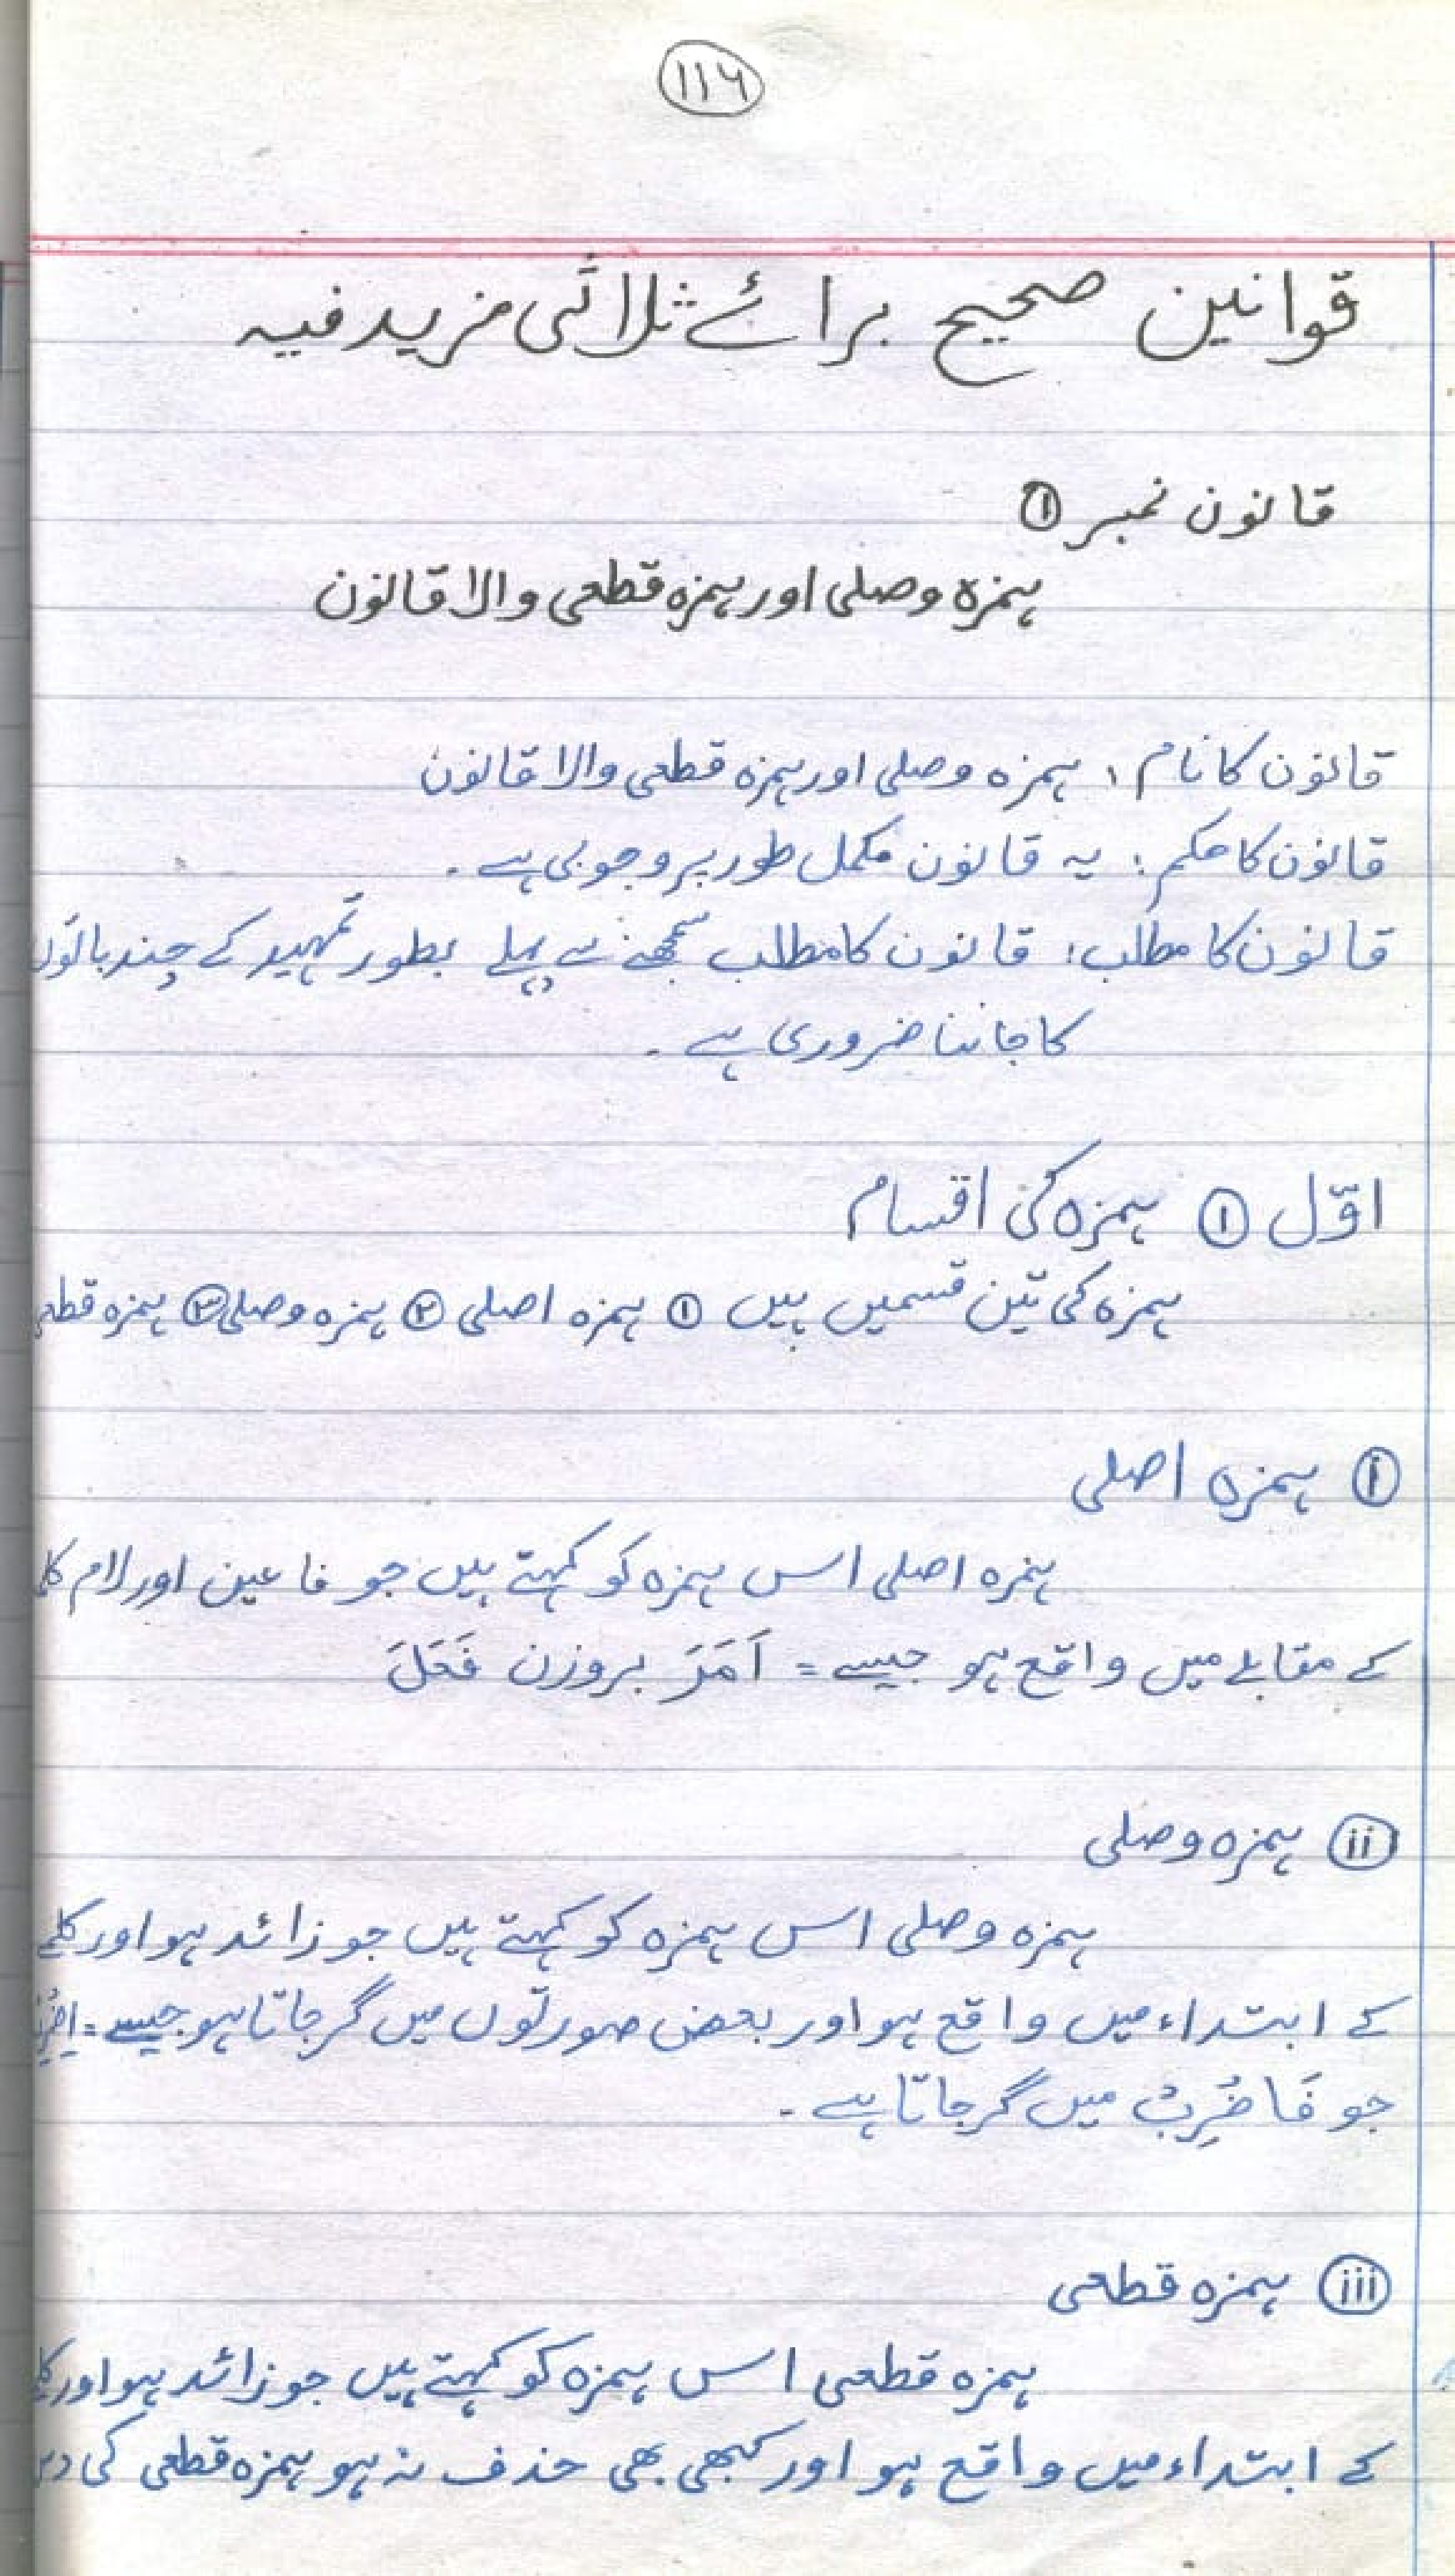 ۱۱۶
قوانین صحیح برائے ثلاثی مزید فیہ
قانون نمبر ①
ہمزہ وصلی اور ہمزہ قطعی والا قانون
قانون کا نام: ہمزہ وصلی اور ہمزہ قطعی والا قانون
قانون کا حکم: یہ قانون مکمل طور پر وجوبی ہے۔
قانون کا مطلب: قانون کا مطلب سمجھنے سے پہلے بطور تمہید کے چند باتوں
کا جاننا ضروری ہے۔
اوّل ① ہمزہ کی اقسام
ہمزہ کی تین قسمیں ہیں ① ہمزہ اصلی ② ہمزہ وصلی ③ ہمزہ
① ہمزہ اصلی
ہمزہ اصلی اس ہمزہ کو کہتے ہیں جو فا عین اور لام
کے مقابلے میں واقع ہو جیسے = اَمَرَ بروزن فَعَلَ
ii ہمزہ وصلی
ہمزہ وصلی اس ہمزہ کو کہتے ہیں جو زائد ہو اور کلمے
کے ابتداء میں واقع ہو اور بعض صورتوں میں گر جاتا ہو جیسے =
جو فَاضْرِبْ میں گر جاتا ہے۔
iii ہمزہ قطعی
ہمزہ قطعی اس ہمزہ کو کہتے ہیں جو زائد ہو اور
کے ابتداء میں واقع ہو اور کبھی بھی حذف نہ ہو ہمزہ قطعی کی